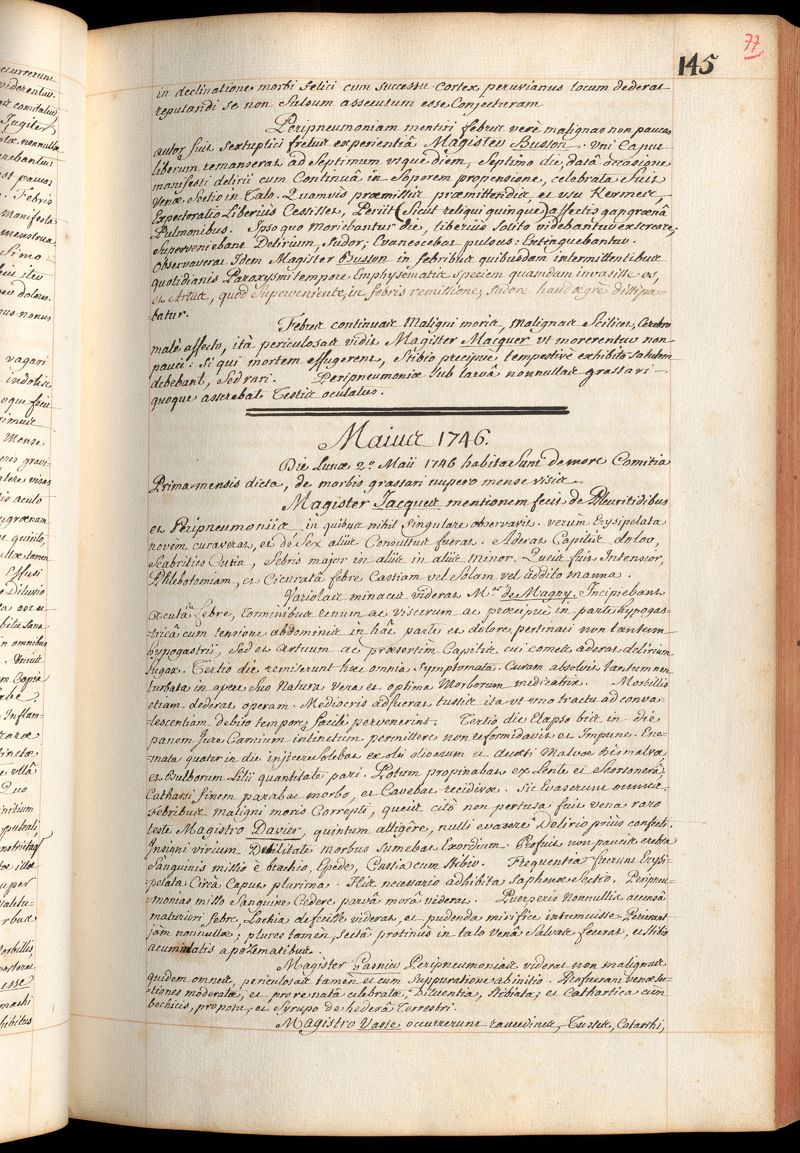 77
145
in declinatione morbi felici cum successu cortex peruvianus locum dederat
reputandi se non falsum assecutum esse Conjecturam
Peripneumoniam mentiri febres verè malignas non paucas
autor fuit sextuplici fretus experientiâ Magister Buston. Uni Caput
liberum remanserat ad Septimum usque diem, Septimo die, datâ occasione
manifesti delirii cum Continuâ in Soporem propensione, celebrata fuit
Venæ Sectio in Talo. Quamvis præmissis præmittendis, et usu Kermes,
Expectoratio Liberius Cessisset, Periit (Sicut reliqui quinque) affectis gangrænâ
Pulmonibus. Ipso quo moriebantur die, liberius solito videbantur excreare;
Superveniebant Delirium, Sudor; Evanescebat pulsus: Extinguebantur.
Observaverat Idem Magister Buston in febribus quibusdam intermittentibus
quotidianis Paroxysmi tempore Emphysematis speciem quamdam invasisse os,
et Artus, quod Superveniente, in febris remissione, sudore haud ægrè dissipa-
batur.
Febres continuas Maligni moris, Malignas Scilicet, Cerebro
malè affecto, ità periculosas vidit Magister Macquer ut morerentur non
pauci: Si qui mortem effugerent, Stibio precipue tempestivè exhibito salutem
debebant, Sed rari. Peripneumonias sub larvâ nonnullas grassari
quoque asserebat Testis oculatus.
Maius 1746.
Die Lunæ 2ª Maii 1746 habita sunt de more Comitia
Prima-mensis dicta, de morbis grassari nupero mense visis
Magister Jacques mentionem fecit de Pleuritidibus
et Peripneumoniis in quibus nihil singulare observavit. verùm Erysipelata
novèm curaverat, et de Sex aliis Consultus fuerat. Aderat Capitis dolor,
Scabrities Cutis, Febris major in aliis in aliis minor. Queis fuit Intensior,
Phlebotomiam, et Cicuratâ febre Cassiam vel Solam vel addito manna.
Variolas minaces viderat M.er de Magny. Incipiebant
Acutâ febre, torminibus renum ac viscerum ac præcipuè in parte hypogas-
tricâ cum tensione abdominis in hâc parte et dolore pertinaci non tantum
hypogastrii, Sed et artuum ac præsertim Capitis cui comes aderat delirium
fugax. Tertio die remiserunt hæc omnia Symptomata. Curam absolvit tantum non
turbata in opere suo Natura vera et optima Morborum medicatrix. Morbillis
etiam dederat operam. Mediocris adfuerat tussis ita ut uno tractu ad conva-
lescentiam debito tempore facilè pervenerint. Tertio die elapso bis in die
panem Jure Carnium intinctum permittere non reformidavit et Impune. Ene-
mata quater in die injicere solebat ex olii olivarum et decocti Malvæ Bismalvæ
et Bulborum Lilii quantitate pari. Potum propinabat ex Lente et Scorsonerâ;
Catharsi finem parabat morbo, et Cavebat recidivæ. Sic Evaserunt omnes.
Febribus maligni moris Correpti, queis citò non pertusa fuit vena raro
teste Magistro Davier, quintum attigêre, nulli evasere. Delirio priùs confecti.
Insigni virium Debilitate morbus Sumebat Exordium. Profuit non paucis crebra
Sanguinis missio è brachio, Epede, Cassia cum Stibio. Frequentia fuerunt Erysi-
pelata Circà Caput plurima. His necessario adhibita Saphenæ Sectio. Peripneu-
monias misso Sanguine Cedere parvâ morâ viderat. Puerperis Nonnullis accensâ
maturiori febre, Lochia defecisse viderat, et pudenda mirifice intumuisse. Perierant
jàm nonnullæ; plures tamèn, Sectâ protinùs in talo venâ Salvas fecerat, et Stibio
acumulatis apozematibus.
Magister Gasnier Peripneumonias viderat non malignas
quidem omnes, periculosas tamen et cum Suppuratione ab initio. Profuerant venæ sec-
tiones moderatæ, et pro re natâ celebratæ, Diluentia, Stibiata, et Cathartica cum
bechicis, propotu, et Syrupo de hederâ Terrestri.
Magistro Vasse occurrerunt raucedines, Tusses, Catarrhi,